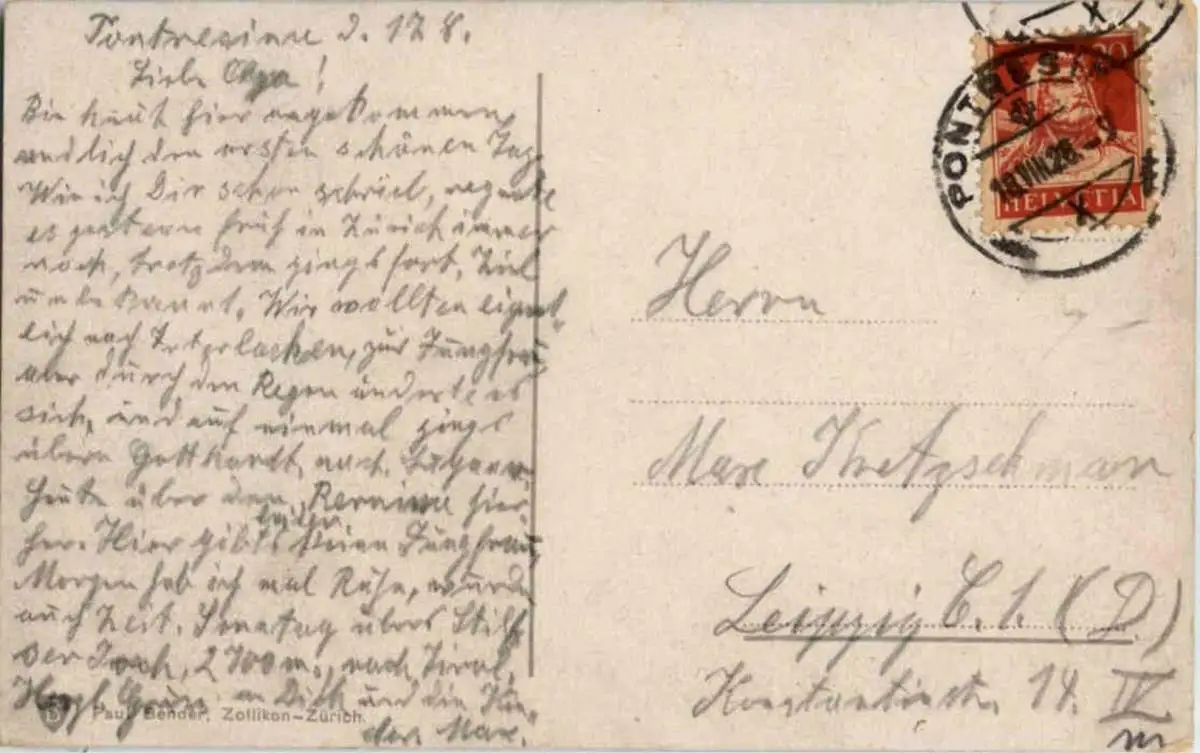 Pontresina d. 17 8.
Liebe Olga!
Bin heut hier angekommen,
endlich den ersten schönen Tag.
Wie ich Dir schon schrieb, regnete
es gestern früh in Zürich immer
noch, trotzdem gings fort, Ziel
unbekannt. Wir wollten eigent-
lich nach Interlacken, zur Jungfrau,
aber durch den Regen änderte es
sich, und auf einmal gings
übern Gotthardt, nach Lugano.
Heute über den Bernina hier-
her. Hier gibts leider keine Jungfrau,
Morgen hab ich mal Ruhe, wurde
auch Zeit. Sonntag übers Stilf-
ser Joch, 2700 m., nach Tirol.
Herzl Grüss an Dich und die Kin-
der. Max.
Paul Bender, Zollikon-Zürich
PONTRESINA
18.VIII.26.-9
X
20
HELVETIA
Herrn
Max Kretzschmann
Leipzig C. 1. (D)
Konstantinstr. 14. IV